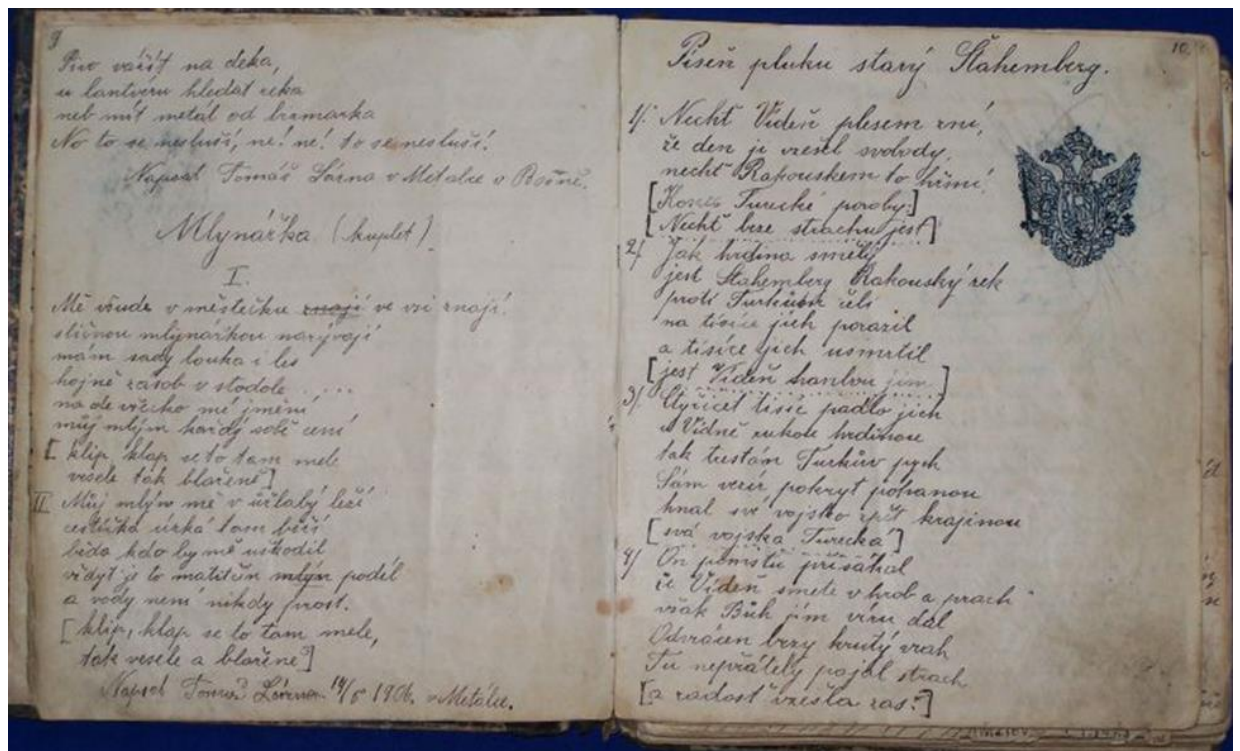 9
Pivo vařit na deka,
u lantveru hledat reka
neb mít metál od bismarka
No to se nesluší, ne! ne! to se nesluší!
Napsal Tomáš Lórna v Metalce v Bosně.
Mlynářka (kuplet)
I.
Mě všude v městečku znají ve vsi znají.
sličnou mlynářkou nazývají
mám sady louka i les
hojně zásob v stodole . ...
na de všecko mé jmění
můj mlýn každý sobě cení
[ klip, klap se to tam mele
vesele tak blaženě]
II Můj mlýn mě v údolí leží
cestička úzká tam běží
bída kdo by mě uškodil
vždyť je to matičin mlýn podíl
a vody není nikdy prost.
[ klip, klap se to tam mele,
tak vesele a blaženě]
Napsal Tomáš 1906. v Metalce.
10
Píseň pluku starý Štahemberg.
1/. Nechť Vídeň plesem zní,
že den jí vzešel svobody,
nechť Rakouskem to hřmí,
[Konec Turecké poroby.]
[Nechť beze strachu jest]
2/ Jak hrdina smělý
jest Štahemberg Rakouský rek
proti Turkům čelí
na tisíce jich porazil
a tisíce jich usmrtil
[jest Vídeň hanbou jim]
3/. Čtyřicet tisíc padlo jich
u Vídně rukou hrdinou
tak trestán Turkův pych
Sám vezír pokryt pohanou
hnal své vojsko zpět krajinou
[svá vojska Turecká]
4/ On pomstu přísáhal
že Vídeň smete v hrob a prach
však Bůh jim víru dal
Odvrácen brzy krutý vrah
Tu nepřátely pojal strach
[a radost vzešla zas.]